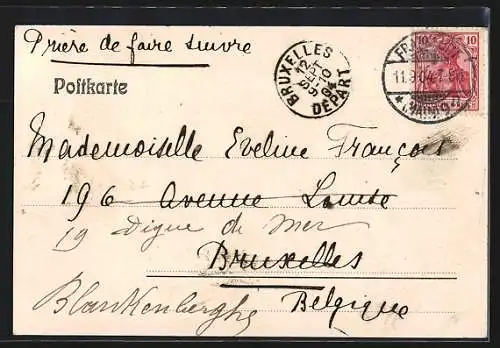 Prière de faire suivre
Postkarte
BRUXELLES
12
SEPT
9-10
04
DÉPART
FR
11.9.04.7-8
* (MAIN) 9
10 10
Mademoiselle Eveline François
196 Avenue Louise
19 Digue de Mer
Bruxelles
Blankenberghe Belgique